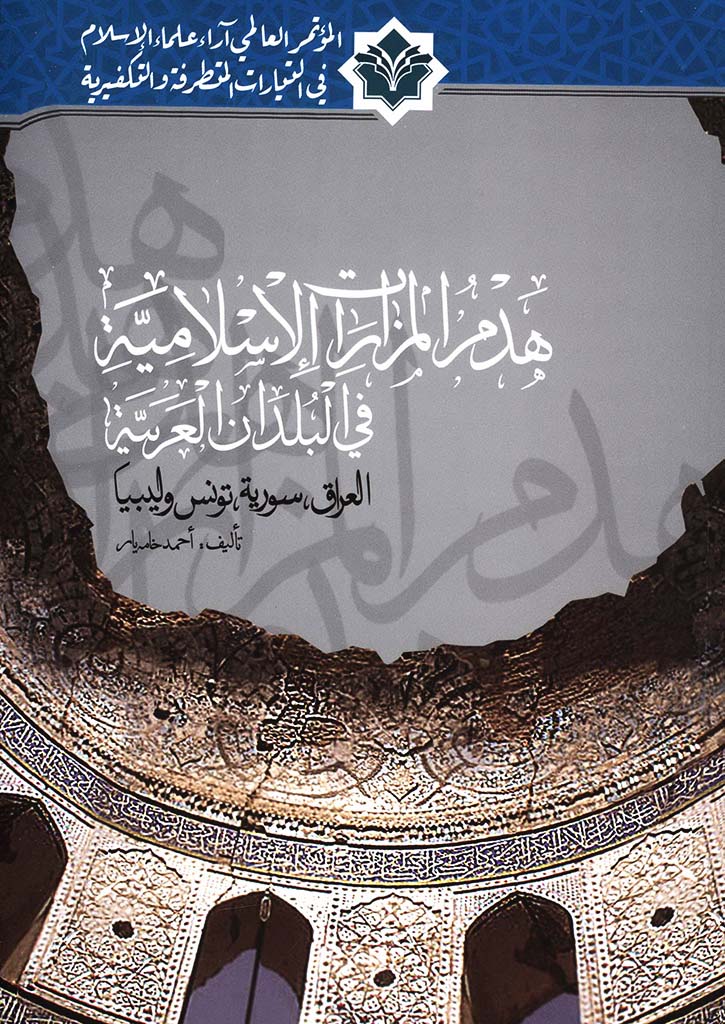 المؤتمر العالمي آراء علماء الإسلام
في التيارات المتطرفة والتكفيرية
هَدْمُ المَزَارَاتِ الإِسْلَامِيَّةِ
فِي البُلدَانِ العَرَبِيَّةِ
العراق، سورية، تونس وليبيا
تأليف: أحمد خامه‌يار